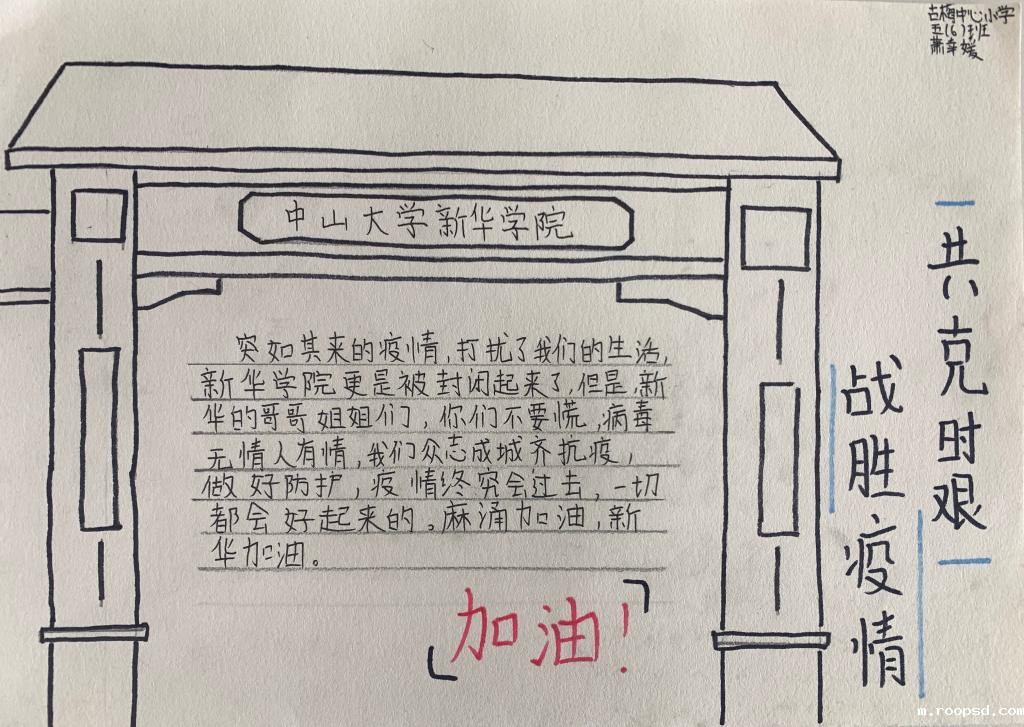 古梅中心小学
五(6)班
中山大学新华学院
突如其来的疫情,打扰了我们的生活,
新华学院更是被封闭起来了,但是,新
华的哥哥姐姐们,你们不要慌,病毒
无情人有情,我们众志成城齐抗疫,
做好防护,疫情终究会过去,一切
都会好起来的。麻涌加油,新
华加油。
「加油!」
共克时艰
战胜疫情
m.roopsd.com